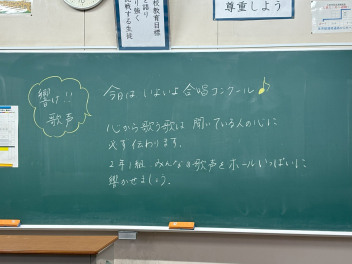 校教育目標
を語り
り強く
戦する生徒
尊重しよう
響け!!
歌声
今日は いよいよ 合唱コンクール♪
心から歌う歌は 聞いている人の心に
必ず伝わります。
2年1組 みんなの歌声を ホールいっぱいに
響かせましょう。